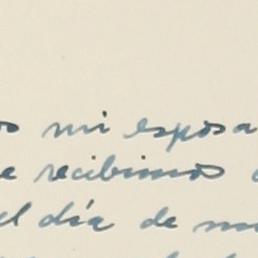 os mi esposa
e recibimos
el día de